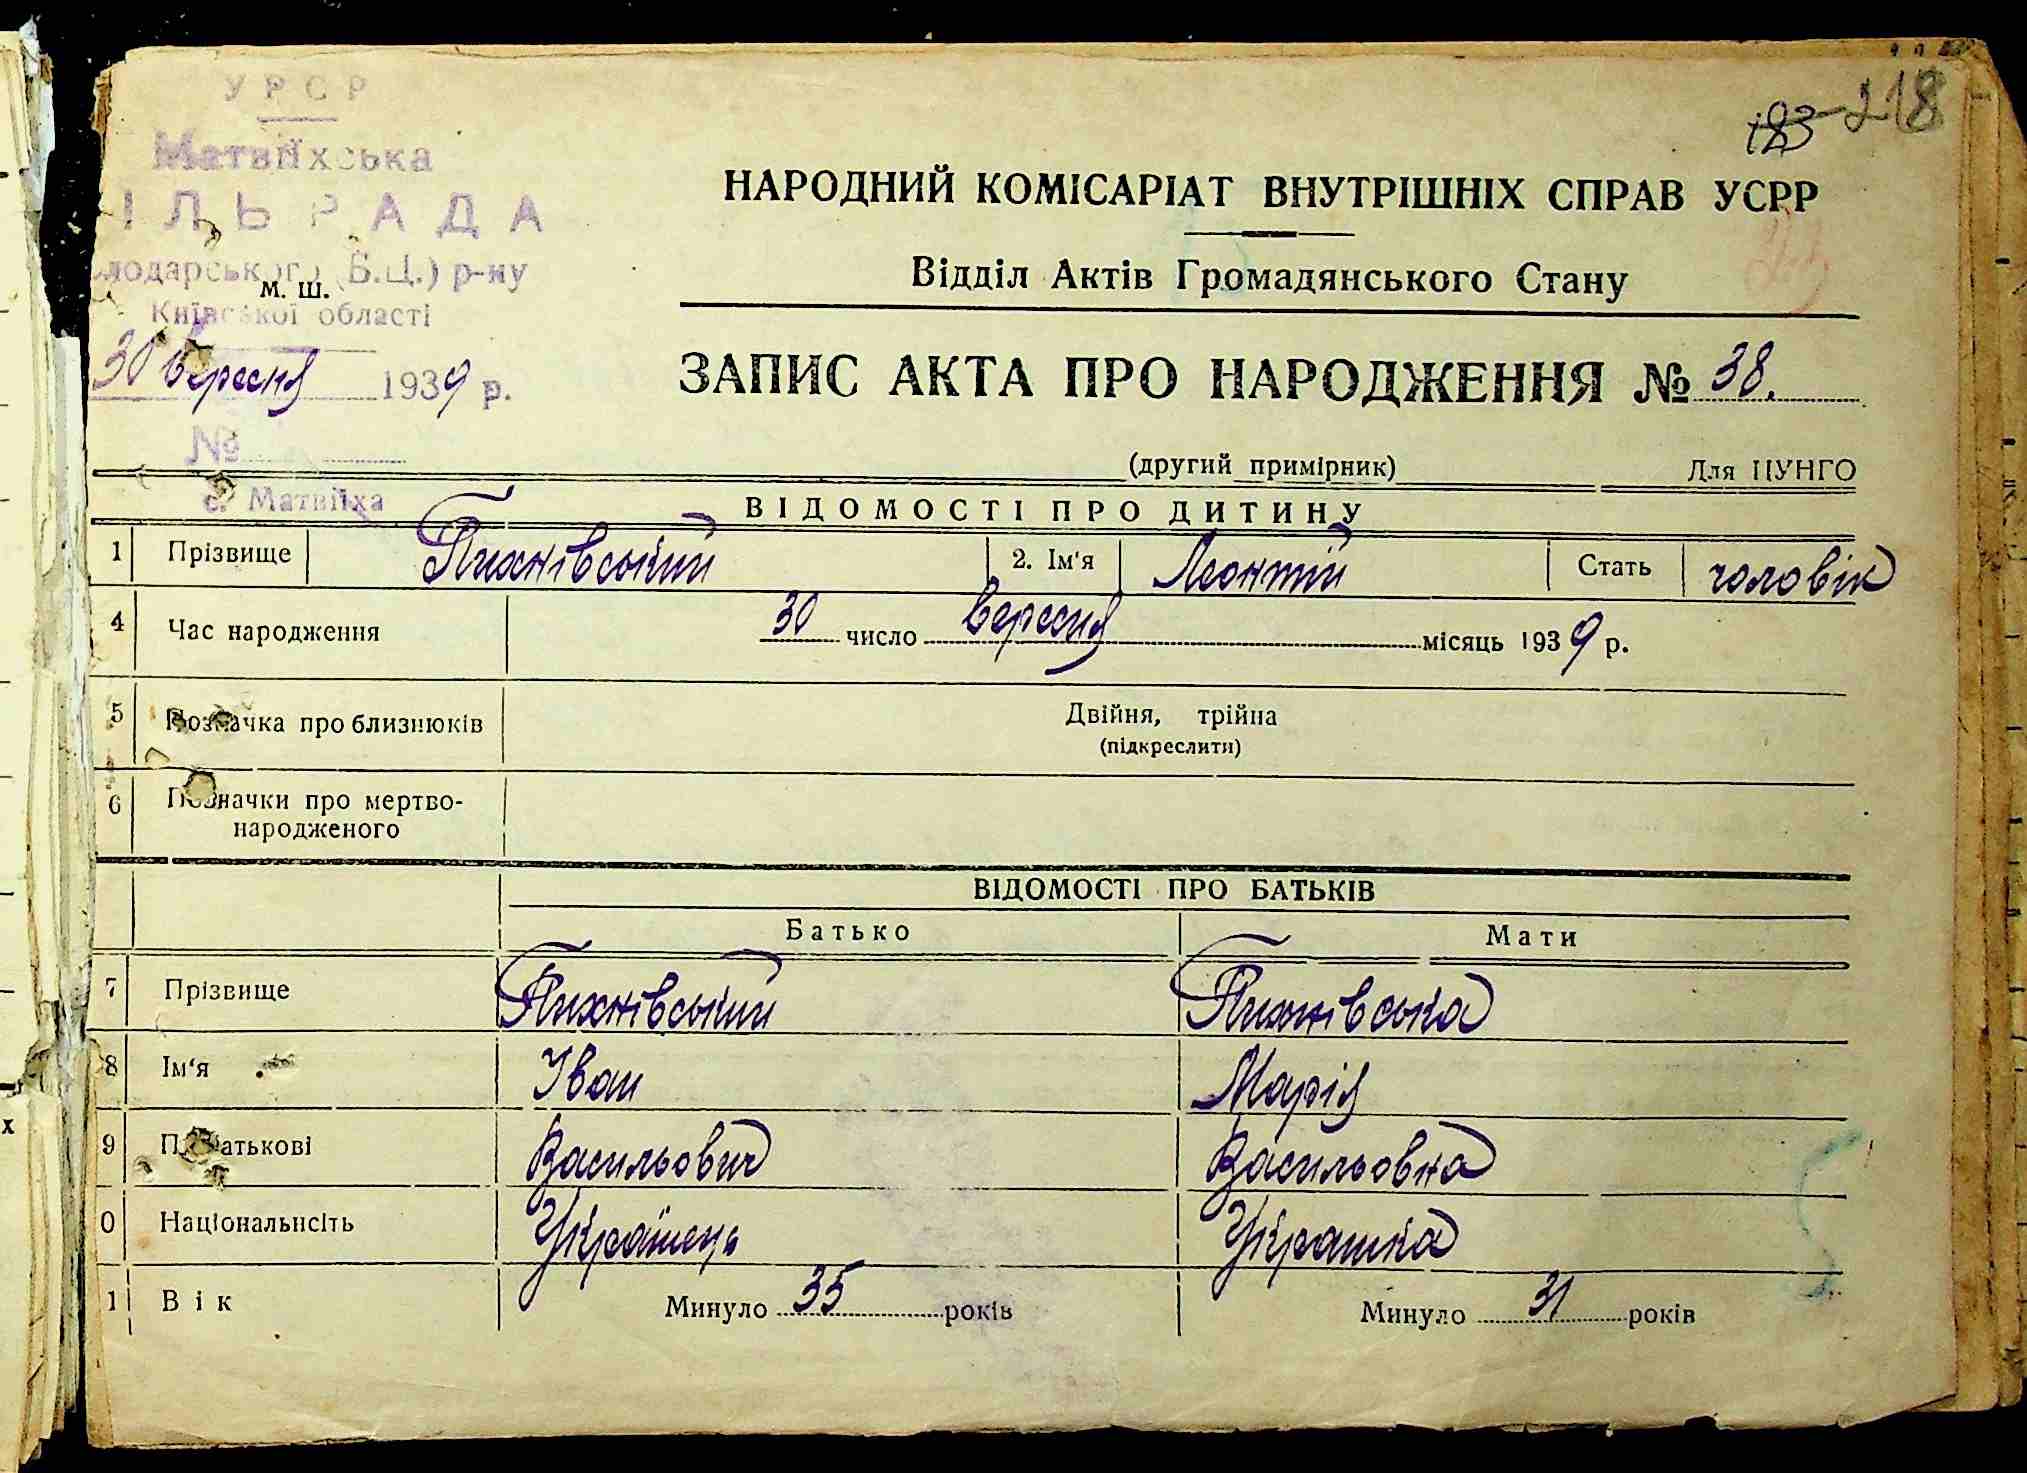 УРСР
183 218
Матвіїхська
ІЛЬРАДА
НАРОДНИЙ КОМІСАРІАТ ВНУТРІШНІХ СПРАВ УСРР
лодарського (Б.Ц.) р-ну
м. ш.
Відділ Актів Громадянського Стану
Київської області
30 вересня 1939 р.
ЗАПИС АКТА ПРО НАРОДЖЕННЯ № 38.
№
(другий примірник) Для ЦУНГО
с. Матвіїха
ВІДОМОСТІ ПРО ДИТИНУ
1 Прізвище Пихнівський 2. Ім'я Леонтій Стать чоловік
4 Час народження 30 число вересня місяць 1939 р.
5 Позначка про близнюків Двійня, трійна
(підкреслити)
6 Позначки про мертво-
народженого
ВІДОМОСТІ ПРО БАТЬКІВ
Батько Мати
7 Прізвище Пихнівський Пихнівська
8 Ім'я Іван Марія
9 По батькові Васильович Васильовна
0 Національність Українець Українка
1 Вік Минуло 35 років Минуло 31 років